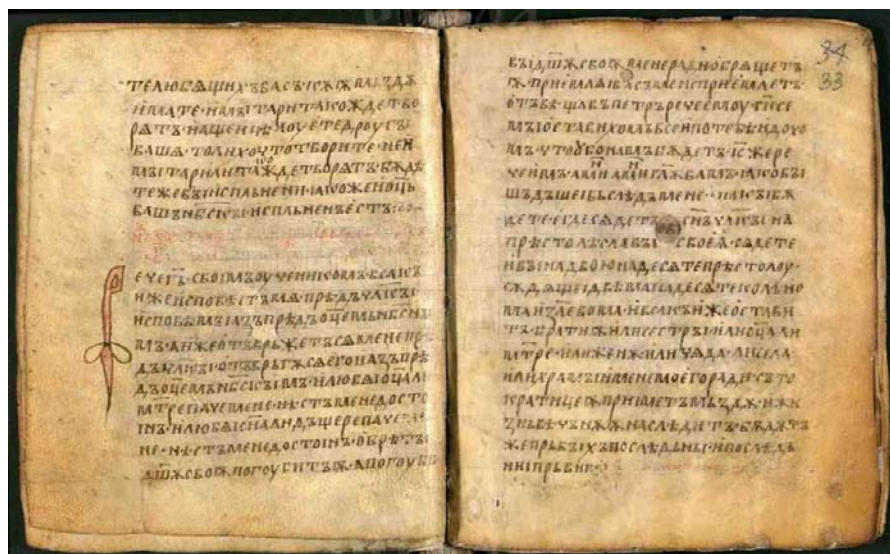 те любѧщихъ васъ
имате· и мꙑтари такожде тво
рѧтъ· и
ваша· то лихо что творите· не и
мꙑтари ли тажде творѧтъ· бѫдѣ
те же вꙑ исплънени· ꙗко же и оц҃ь
вашъ нбс҃къі исплъненъ естъ·
ече г҃ъ· своімъ оученикомъ· вьсѣкъ
иже исповѣстъ мѧ· прѣдъ чл҃кꙑ
исповѣмъ і азъ прѣдъ оц҃емь
мь· а иже отъвръжетъ сѧ мене прѣ
дъ чл҃кꙑ· отъвръгѫ сѧ его и азъ прѣ
дъ оц҃емь нбс҃къімь· и любѧі оц҃а ли
м҃тре паче мене· нѣстъ мене досто
інъ· и любѧі сꙑна ли дъщере паче
не· нѣстъ мене достоінъ· обрѣтꙑ
дш҃ѫ своѭ погоубитъ ѭ· а погоуб
въі дш҃ѫ своѭ мене ради обрѧщетъ
ѭ· приемлѧі васъ мене приемлетъ·
отъвѣщавъ петръ рече емоу· г҃і се
мꙑ оставихомъ вьсе і по тебѣ идохо
мъ· что оубо намъ бѫдетъ· і҃с же ре
че имъ· ам҃н ам҃н гл҃ѭ вамъ· ꙗко вꙑ
шъдъшеі вь слѣдъ мене·
дете· егда сѧдетъ с҃нъ чл҃къі на
прѣстолѣ славꙑ своеѧ· сѧдете
и вꙑ на двою на десѧте прѣстолоу·
сѫдѧще і дъвѣма на десѧте колѣно
ма из҃лвома· и вьсѣкъ иже остави
тъ· братиѭ или сестрꙑ· или оц҃а ли
м҃тре· или женѫ· или чѧда· ли села
или храмꙑ имене моего ради· съто
крат​ицеѭ прииметъ мьздѫ· и жи
знь вѣчънѫѭ наслѣдитъ· бѫдѫтъ
же прьвꙑхъ послѣдьни· и послѣдь
ниі прьвии·
34
33